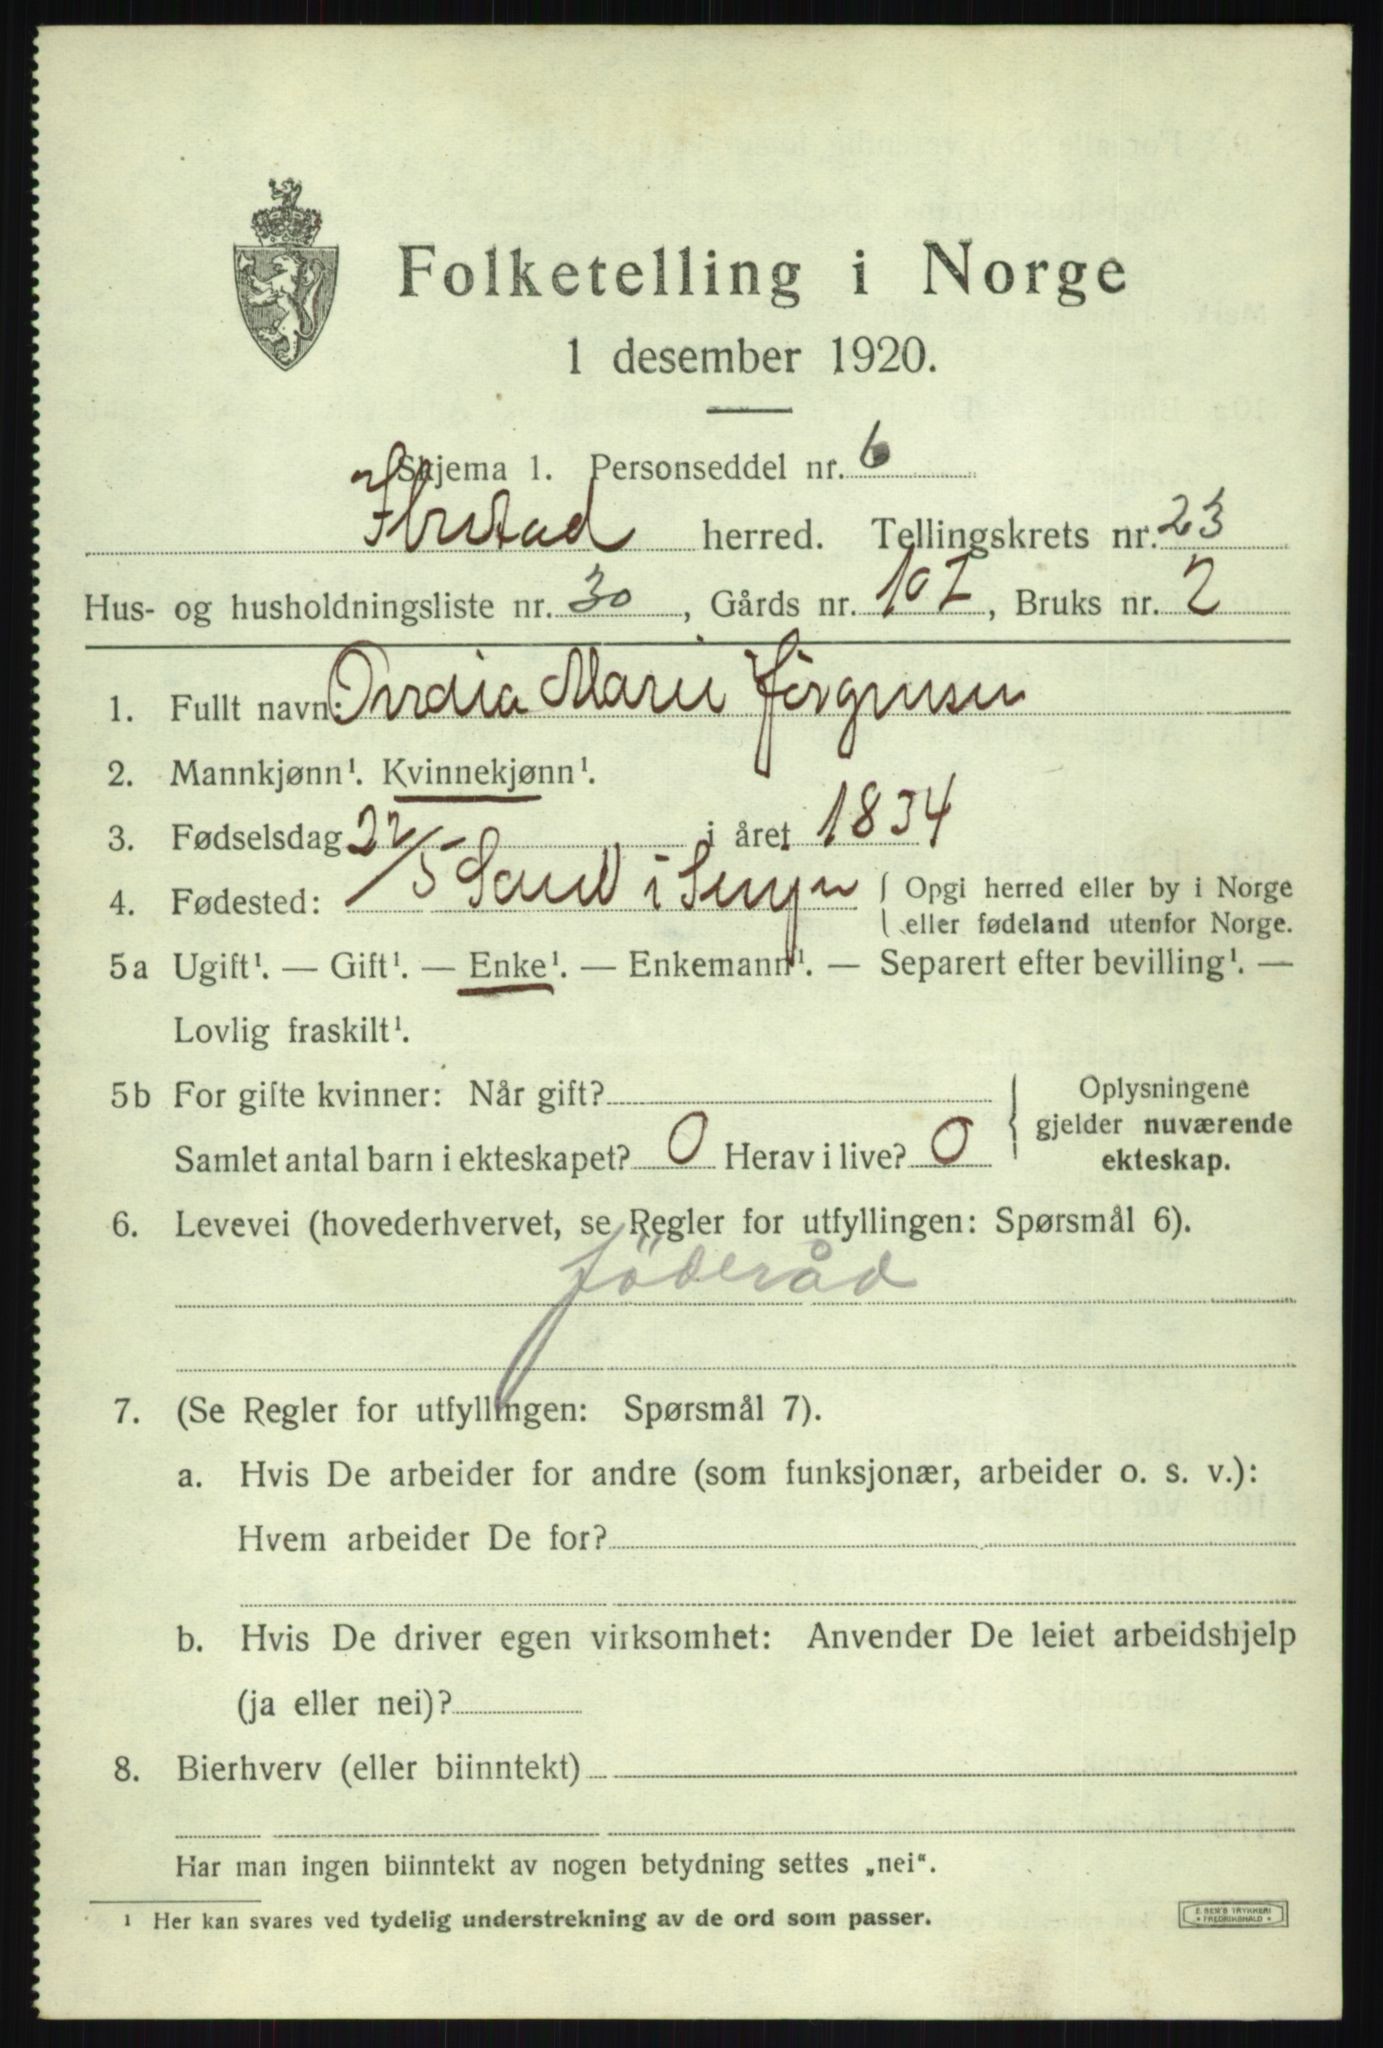 Folketelling i Norge
1 desember 1920.
Skjema 1. Personseddel nr. 6
Ibestad herred. Tellingskrets nr. 23
Hus- og husholdningsliste nr. 30, Gårds nr. 107, Bruks nr. 2
1. Fullt navn: Marie Jørgensen
2. Mannkjønn¹. Kvinnekjønn¹.
3. Fødselsdag 22/5 i året 1834
4. Fødested: i Senjen { Opgi herred eller by i Norge
eller fødeland utenfor Norge.
5a Ugift¹. — Gift¹. — Enke¹. — Enkemann¹. — Separert efter bevilling¹. —
Lovlig fraskilt¹.
5b For gifte kvinner: Når gift? } Oplysningene
gjelder nuværende
Samlet antal barn i ekteskapet? 0 Herav i live? 0 ekteskap.
6. Levevei (hovederhvervet, se Regler for utfyllingen: Spørsmål 6).
föderåd
7. (Se Regler for utfyllingen: Spørsmål 7).
a. Hvis De arbeider for andre (som funksjonær, arbeider o. s. v.):
Hvem arbeider De for?
b. Hvis De driver egen virksomhet: Anvender De leiet arbeidshjelp
(ja eller nei)?
8. Bierhverv (eller biinntekt)
Har man ingen biinntekt av nogen betydning settes „nei“.
¹ Her kan svares ved tydelig understrekning av de ord som passer.
E. SEM'S TRYKKERI
FREDRIKSHALD